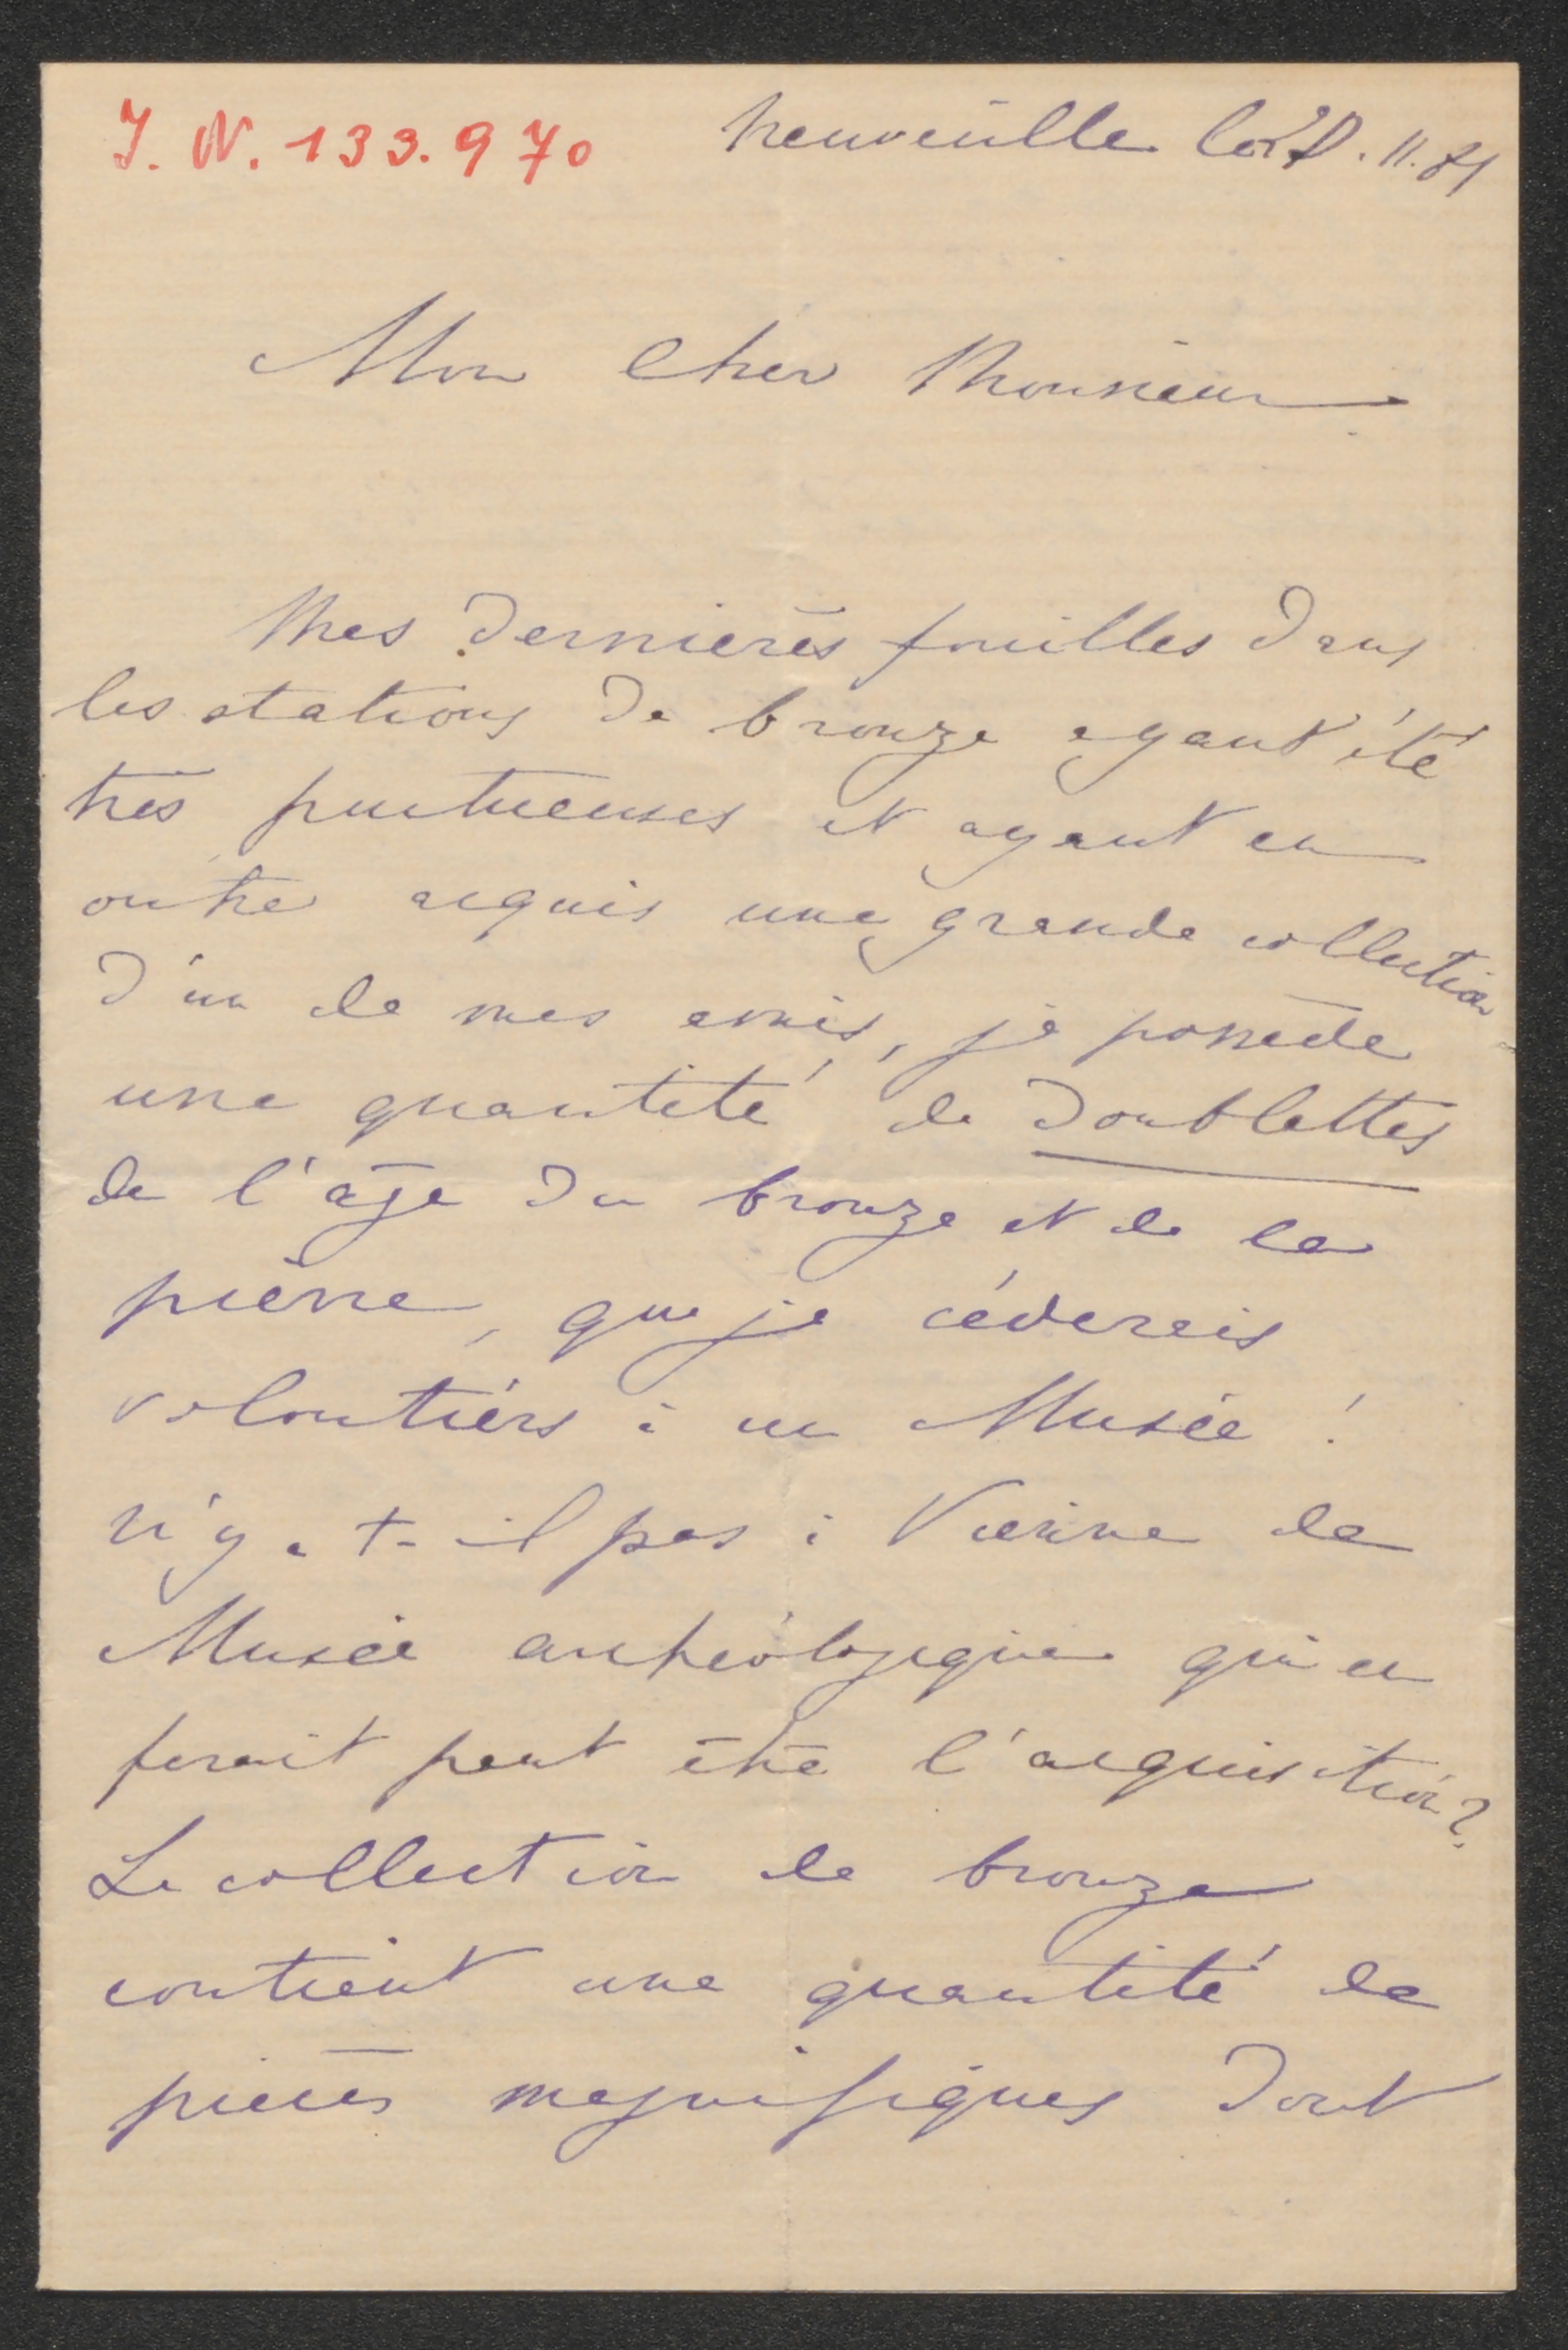 J. N. 133.970
Neuveville le .11.81
Mon cher Monsieur
Mes dernières fouilles dans
les stations de bronze ayant été
très fructueuses et ayant en
outre acquis une grande collection
d'un de mes amis, je possède
une quantité de doublettes
de l'âge du bronze et de la
pierre, que je céderais
volontiers à un Musée!
N'y a-t-il pas à Vienne de
Musée archéologique qui en
ferait peut être l'acquisition?
La collection de bronze
contient une quantité de
pièces magnifiques dont